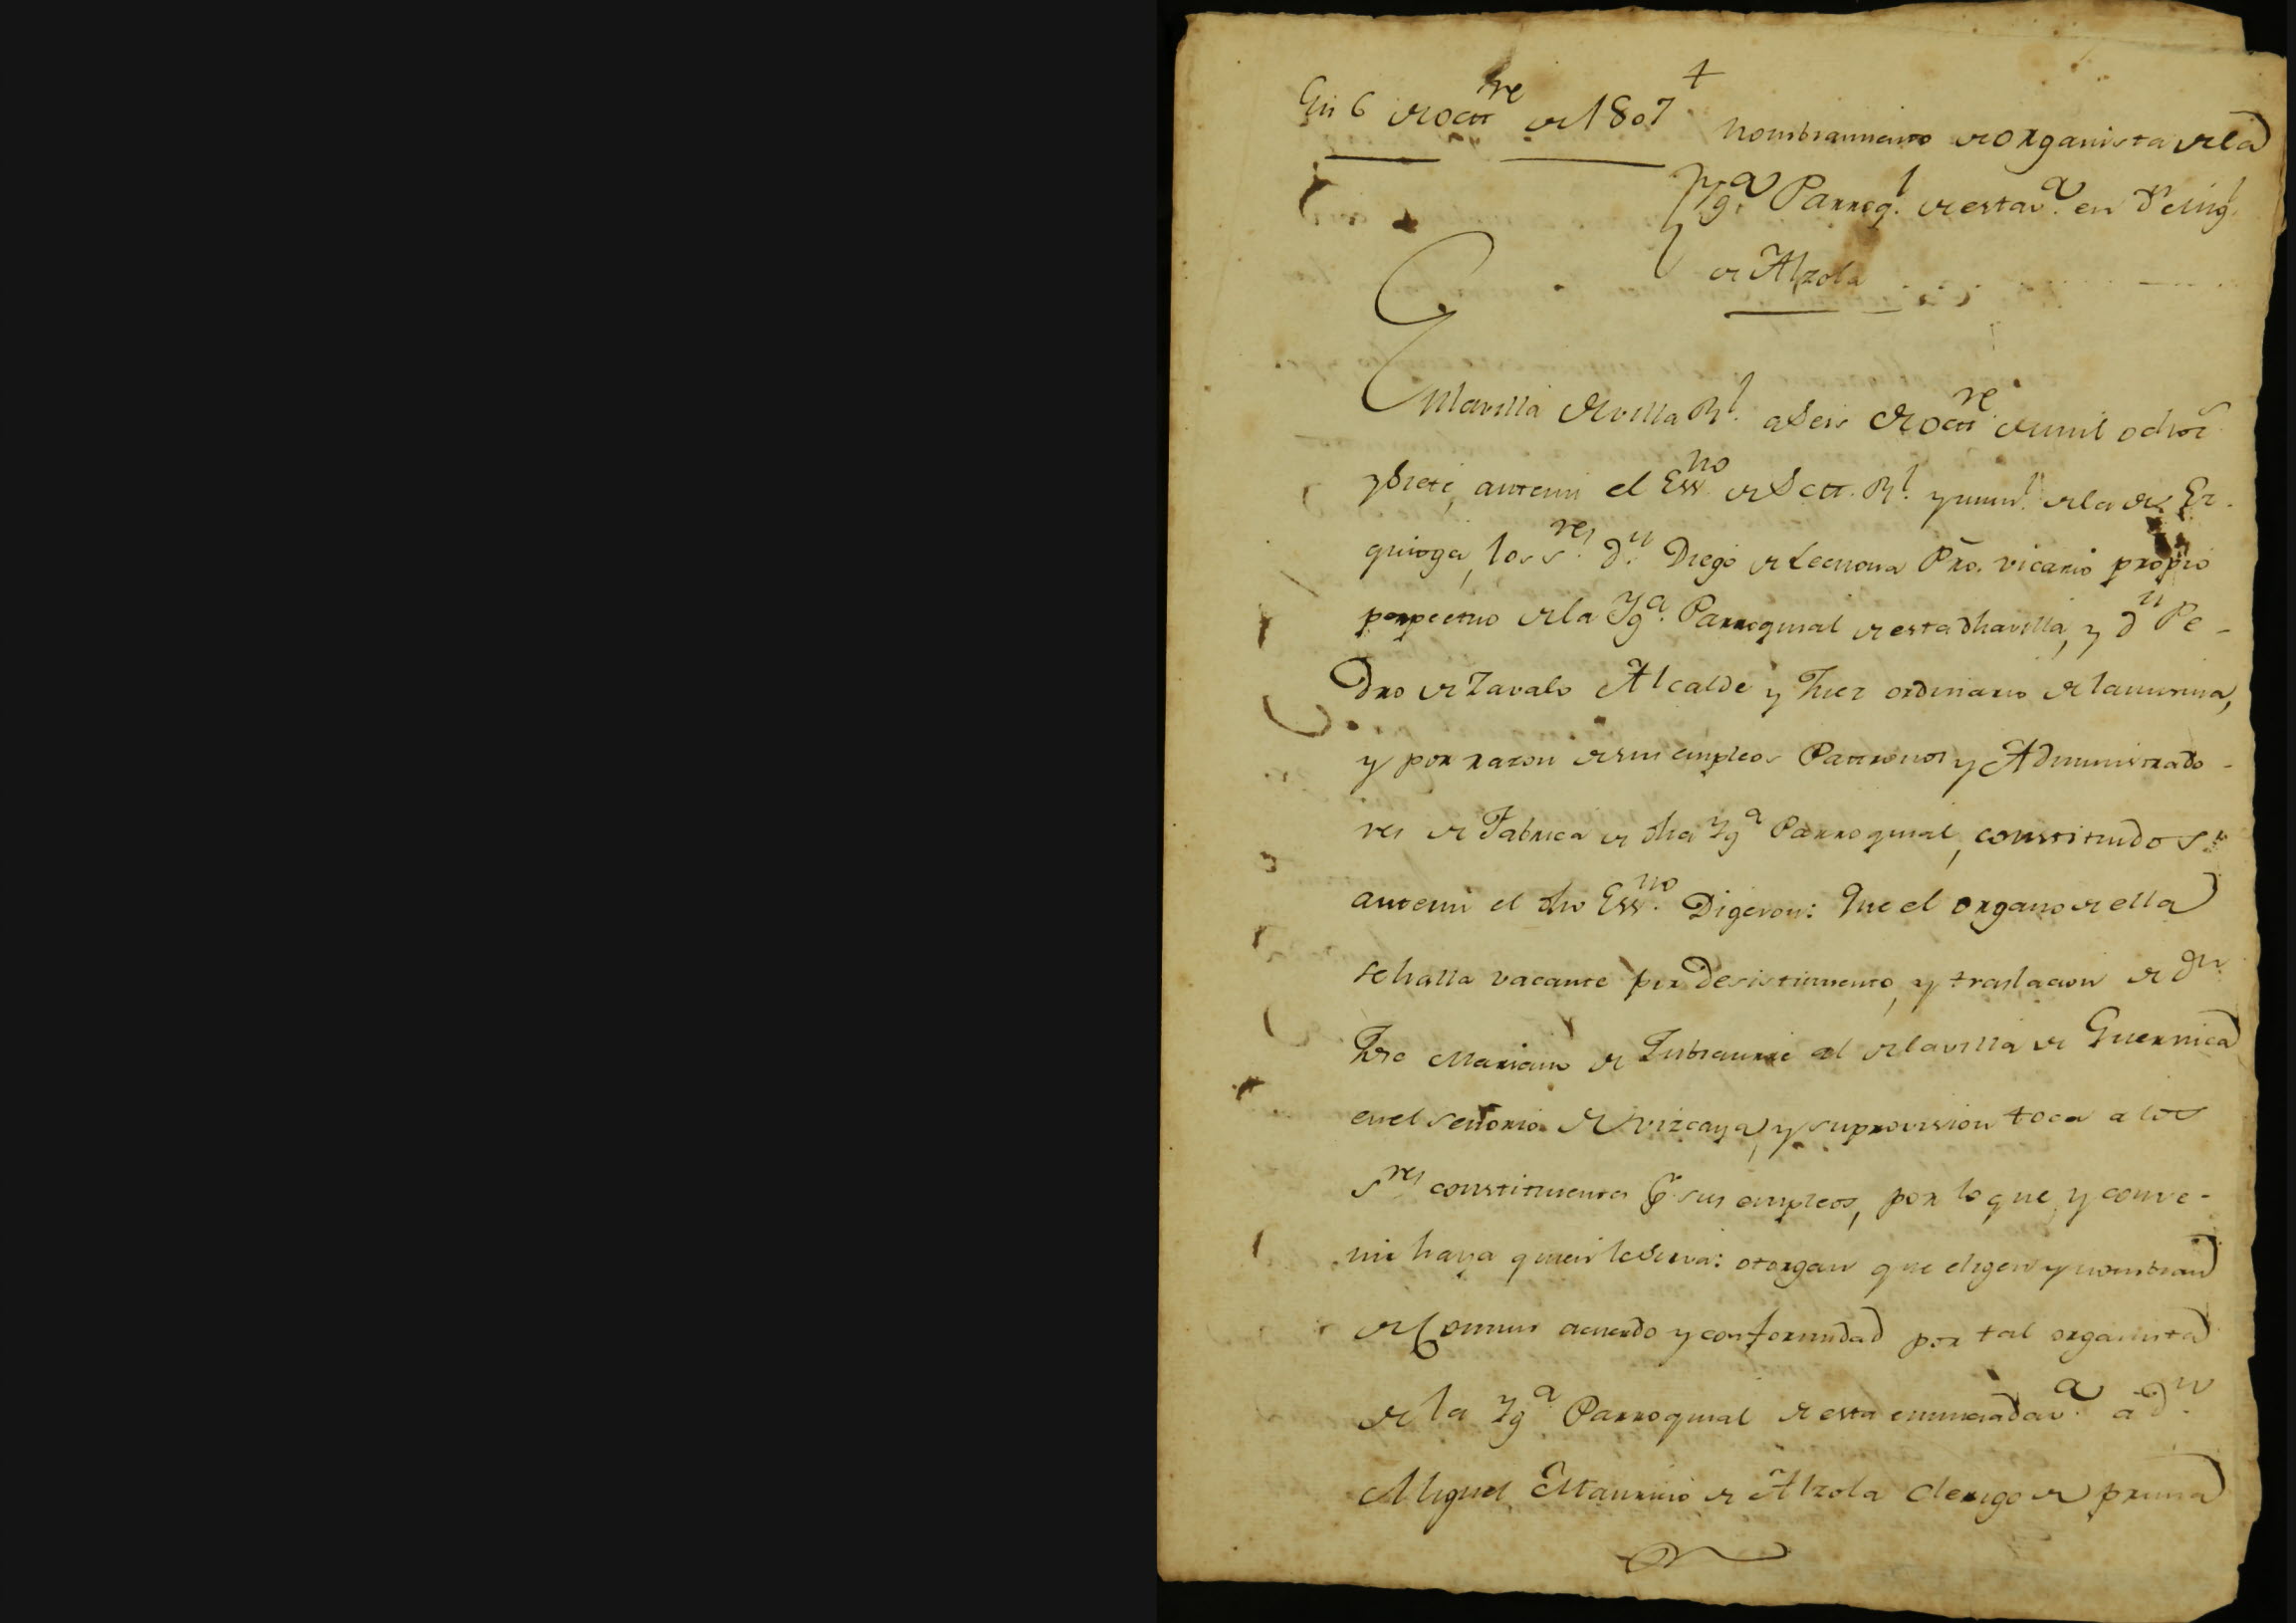 En 6 de oct.re de 1807
+
Nombramiento de organista de la
Yg.a Parroq.l de esta v.a en d.n Mig.l
de Alzola
En la villa de villa R.l a Seis de oct.re de mil ochoc.
y Siete, ante mi el Ess.no de S. M. R.l y num.l de la de Ez-
quioga, los s.res d.n Diego de Lecuona Pro. vicario propio
perpetuo de la Yg.a Parroquial de esta dha villa, y d.n Pe-
dro de Zavalo Alcalde y Juez ordinario de la misma,
y por razon de sus empleos Patronos y Administrado-
res de Fabrica de dha Yg.a Parroquial, constituidos
ante mi el dho Ess.no Digeron: Que el organo de ella
se halla vacante por Desistimiento, y traslacion de d.n
Jse Mariano de al de la villa de Guernica
en el señorio de vizcaya, y su provision toca a los
s.res constituientes p.r sus empleos, por lo que, y conve-
nir haya quien le Sirva: otorgan que eligen y nombran
de Comun acuerdo y conformidad por tal organista
de la Yg.a Parroquial de esta enunciada v.a a d.n
Miguel Mauricio de Alzola Clerigo de prima